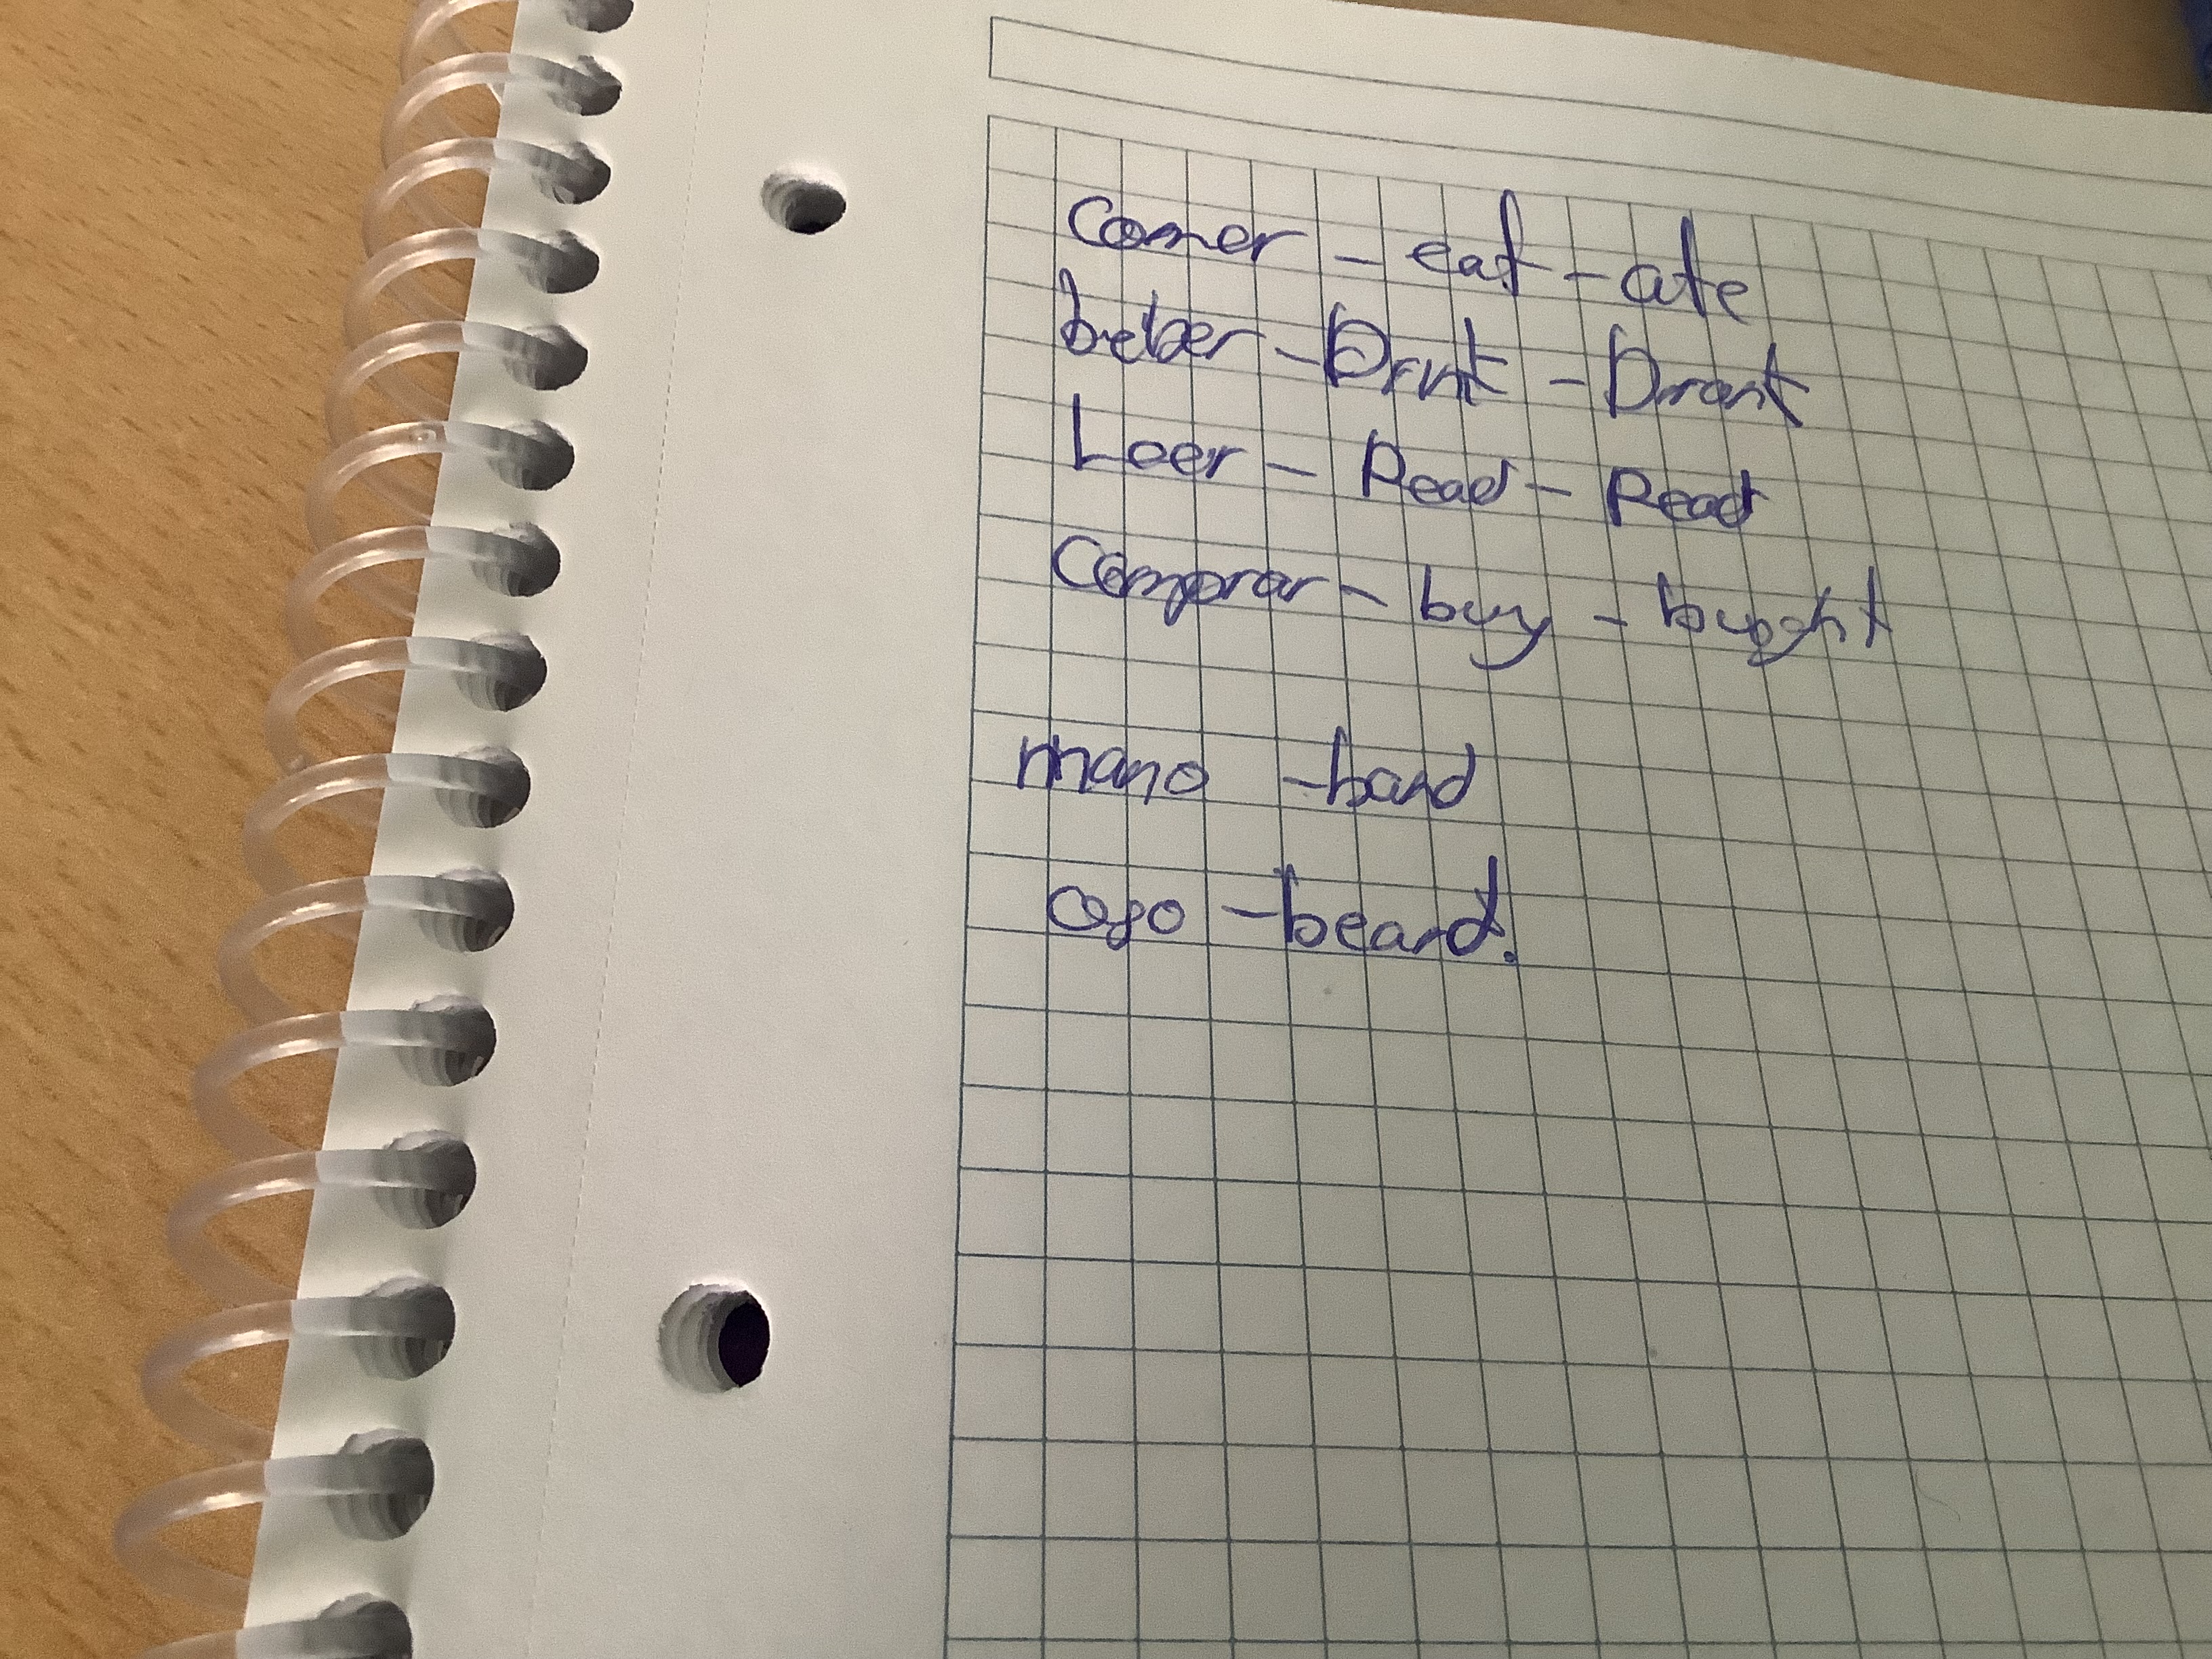 Comer - eat - ate
beber - Drint - Drant
Leer - Read - Read
Comprar - buy - bught
mano - hand
ojo - beard.